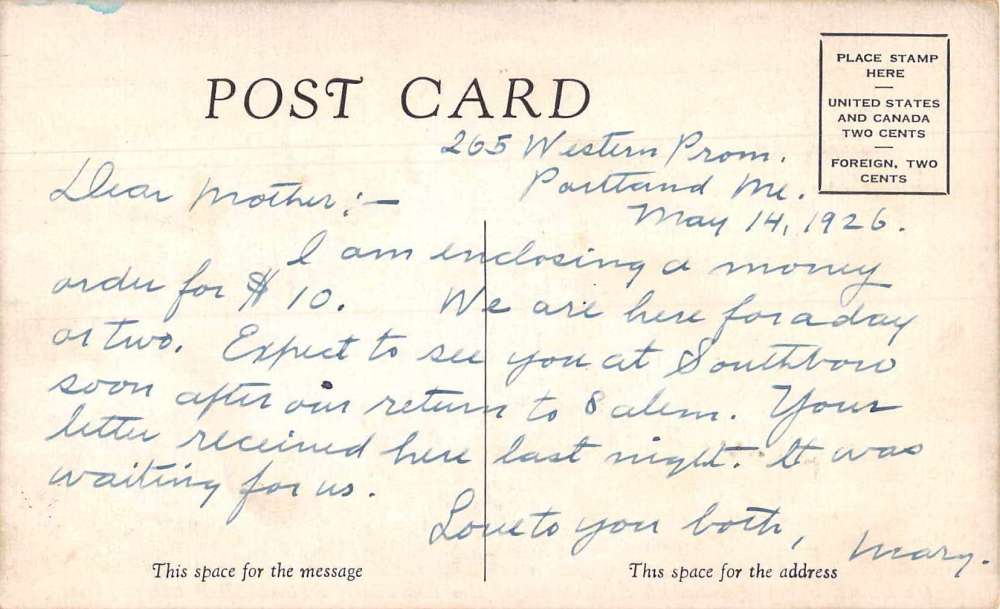 POST CARD
PLACE STAMP
HERE
UNITED STATES
AND CANADA
TWO CENTS
FOREIGN, TWO
CENTS
265 Western Prom.
Portland Me.
May 14, 1926.
Dear Mother:—
I am enclosing a money
order for $10. We are here for a day
or two. Expect to see you at Southboro
soon after our return to Salem. Your
letter received here last night. It was
waiting for us.
Love to you both,
Mary.
This space for the message
This space for the address